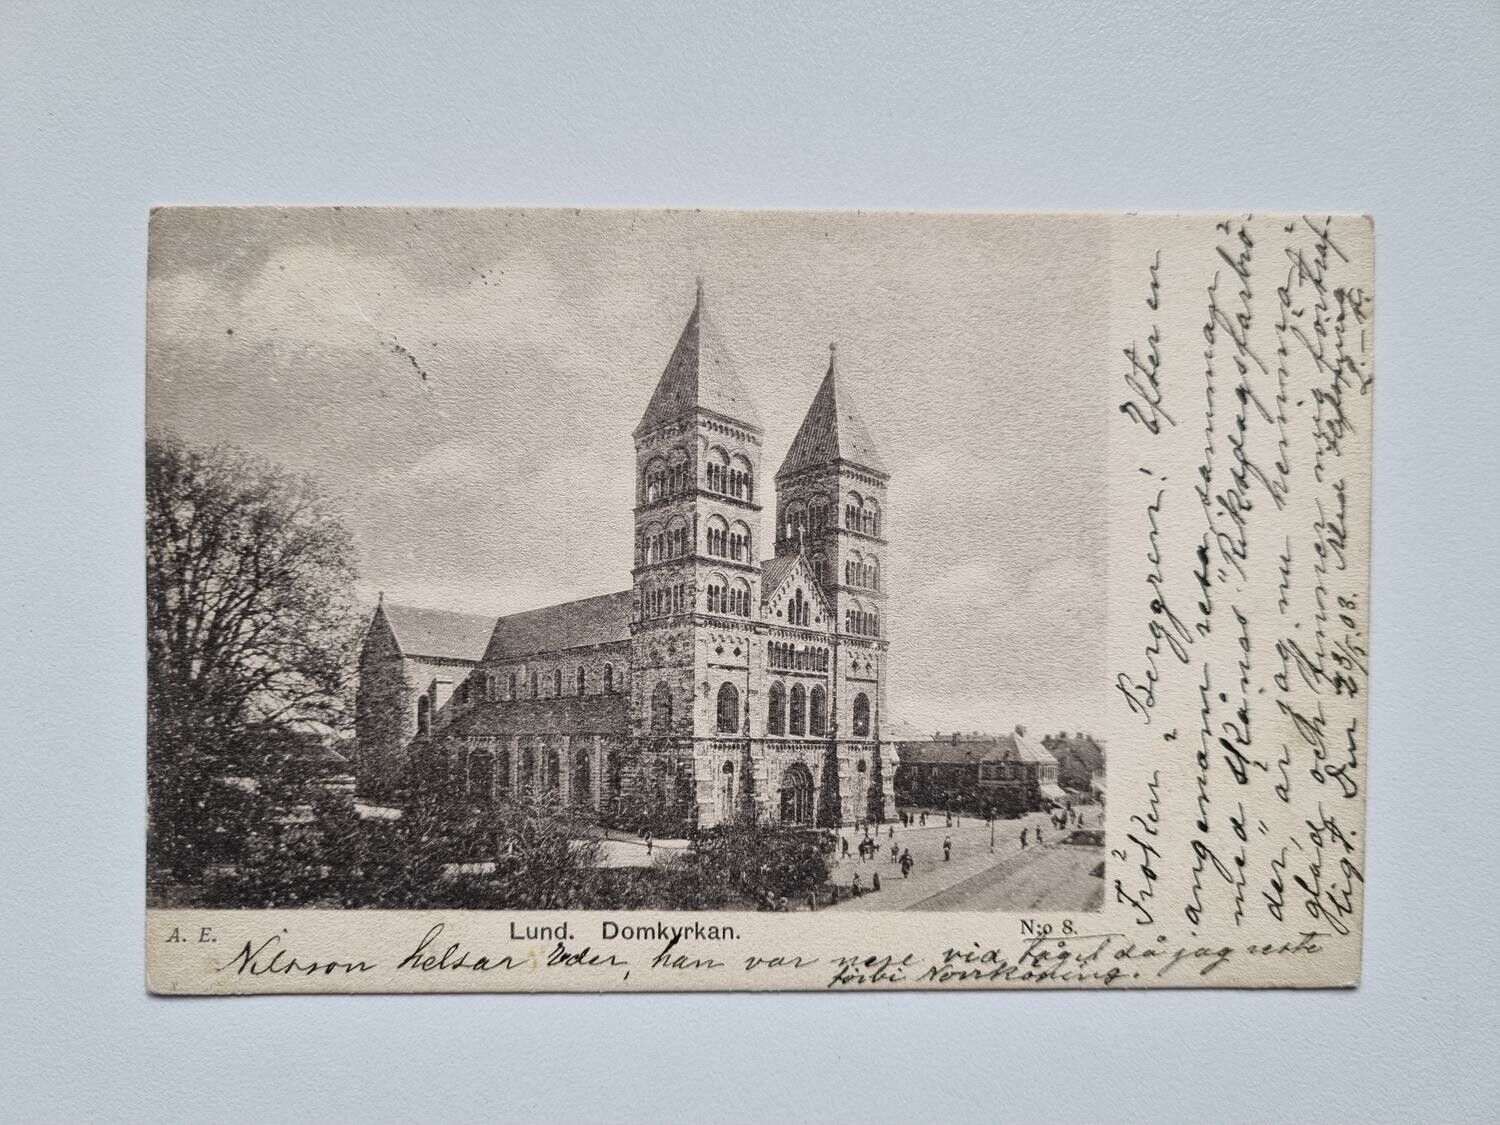 A. E.
Lund. Domkyrkan.
N:o 8.
Fröken Berggren! Efter en
angenäm resa, samman
med Skånes "Riksdagsfarbrö-
der", är jag nu hemma
glad och finner mig förträf-
ligt. Den 23/5.08. Med
Nilsson helsar Eder, han var nere vid tåget då jag reste
förbi Norrköping.